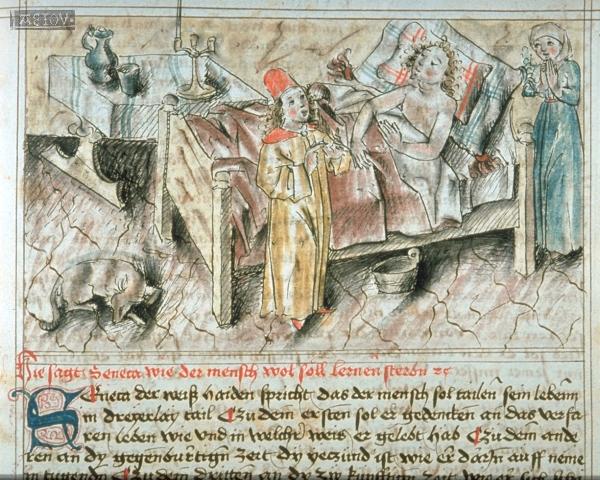 Hie sagt Seneca wie der mensch wol soll lernen sterbn
Seneca der weiß haiden spricht das der mensch sol tailen sein lebenn
in dreyerlay tail Czu dem ersten sol er gedencken an das verfa
ren leben wie vnd in welcher weis er gelebt hab Czu dem ande
ren an dy gegenburtign zeit dy yeczund ist wie er darin auff neme
in tugendn Czu dem dritten an dy zw kunfftign zeit